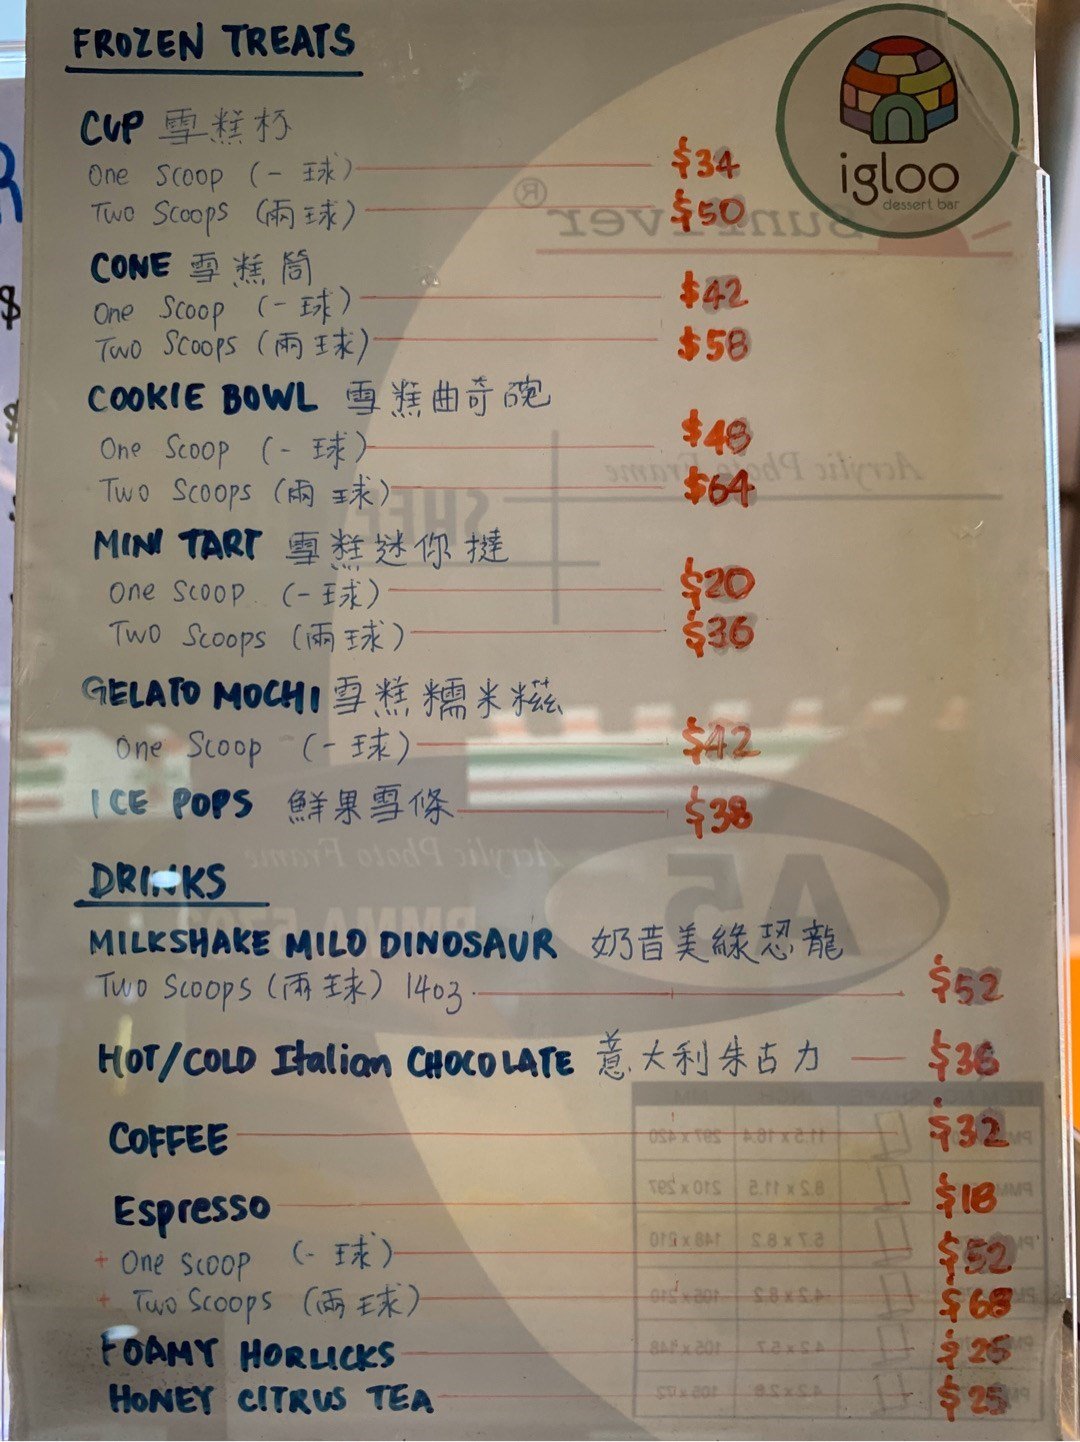 FROZEN TREATS
igloo
dessert bar
CUP 雪糕杯
One Scoop (一球) $34
Two Scoops (兩球) $50
CONE 雪糕筒
One Scoop (一球) $42
Two Scoops (兩球) $58
COOKIE BOWL 雪糕曲奇碗
One Scoop (一球) $48
Two Scoops (兩球) $64
MINI TART 雪糕迷你撻
One Scoop (一球) $20
Two Scoops (兩球) $36
GELATO MOCHI 雪糕糯米糍
One Scoop (一球) $42
ICE POPS 鮮果雪條 $38
DRINKS
MILKSHAKE MILO DINOSAUR 奶昔美綠恐龍
Two Scoops (兩球) 14oz $52
HOT/COLD Italian CHOCOLATE 意大利朱古力 $36
COFFEE $32
Espresso $18
+ One Scoop (一球) $52
+ Two Scoops (兩球) $68
FOAMY HORLICKS $25
HONEY CITRUS TEA $25
Acrylic Photo Frame
A5